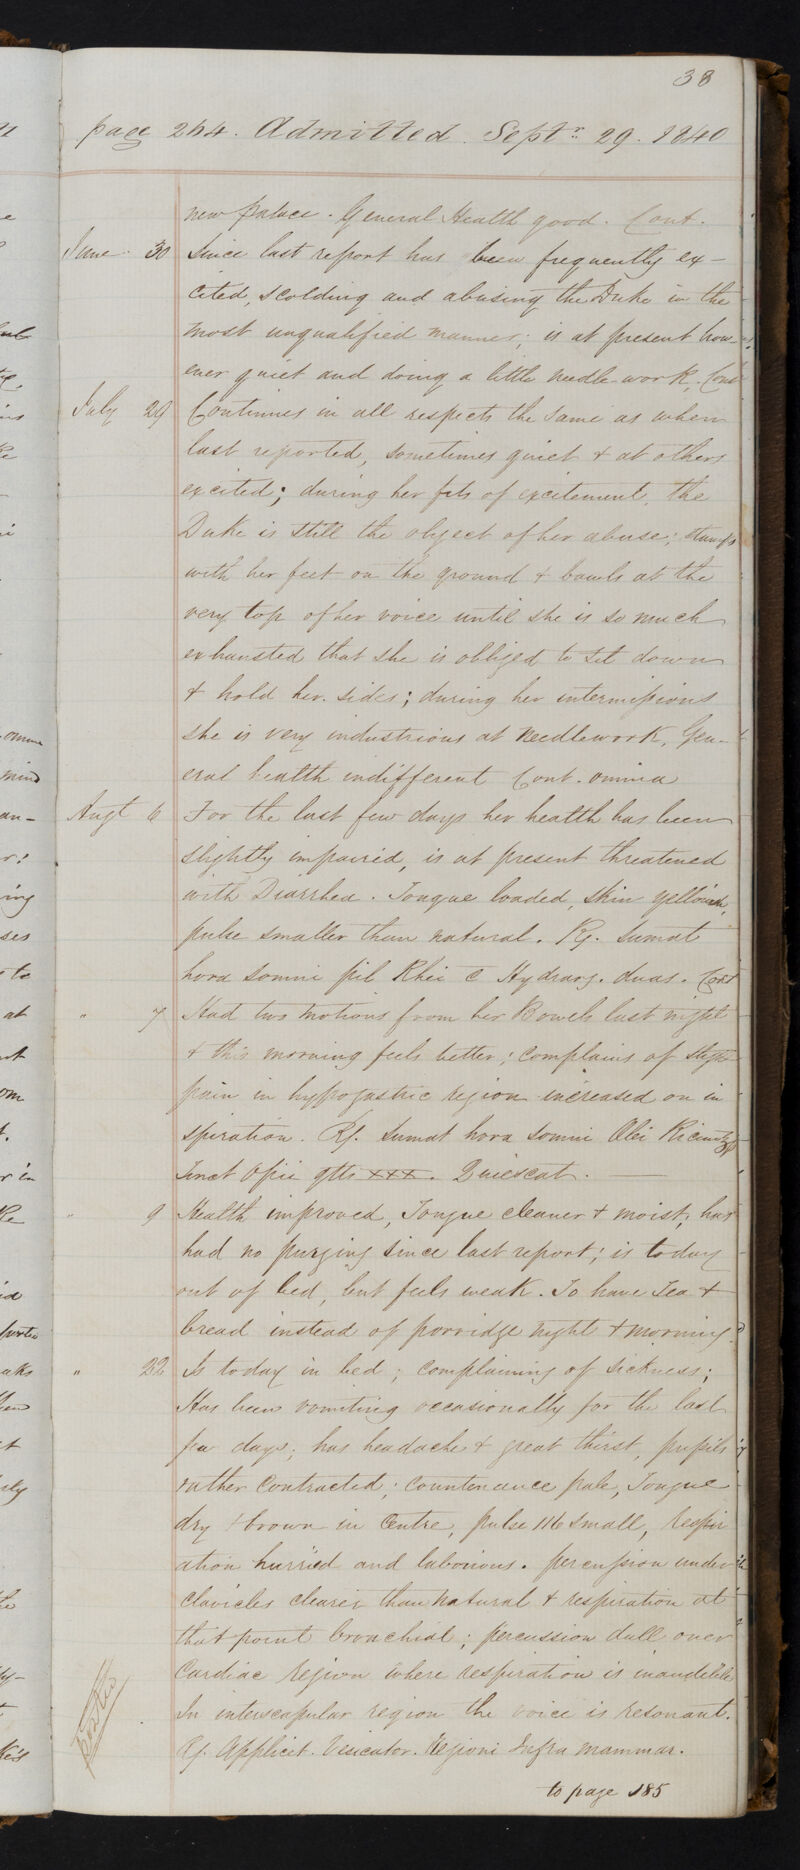 38
page 264. Admitted. Septr. 29. 1840
new palace. General Health good. Cont.
June 30 Since last report has been frequently ex-
cited, scolding and abusing the Duke in the
most unqualified manner; is at present how-
ever quiet and doing a little needle-work. Cont
July 29 Continues in all respects the same as when
last reported, sometimes quiet & at others
excited; during her fits of excitement, the
Duke is still the object of her abuse; stamps
with her feet on the ground & bawls at the
very top of her voice until she is so much
exhausted that she is obliged to sit down
& hold her sides; during her intermissions
she is very industrious at needlework, Gen-
eral health indifferent Cont. omnia
Augt 6 For the last few days her health has been
slightly impaired, is at present threatened
with Diarrhea. Tongue loaded, skin yellowish,
pulse smaller than natural. Rx. Sumat
hora somni pil Rhei c Hydrarg. duas. Cont
" 7 Had two motions from her Bowels last night
& this morning feels better; complains of slight
pain in hypogastric region increased on in
spiration. Rx. Sumat hora somni Olei Ricini
Tinct Opii gtts xxx. Quiescat.
" 9 Health improved, Tongue cleaner & moist, has
had no purging since last report; is today
out of bed, but feels weak. To have Tea &
bread instead of porridge night & morning.
" 22 Is today in bed; complaining of sickness;
Has been vomiting occasionally for the last
few days; has headache & great thirst, pupils
rather contracted; countenance pale, Tongue
dry & brown in centre, pulse 116 small, respir
ation hurried and laborious. percussion under
clavicles clearer than natural & respiration at
that point bronchial; percussion dull over
Cardiac region where respiration is inaudible
In interscapular region the voice is resonant.
Rx. Applicet. Vesicator. Regioni Infra mammar.
posted
to page 185